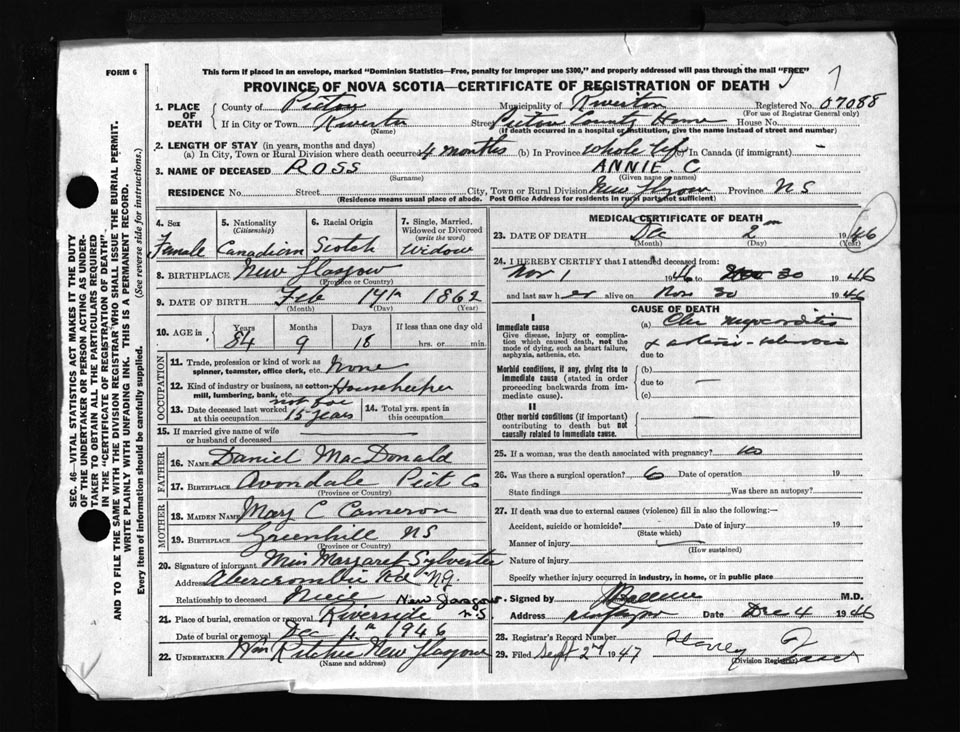 FORM 6
This form if placed in an envelope, marked "Dominion Statistics—Free, penalty for improper use $300," and properly addressed will pass through the mail "FREE"
PROVINCE OF NOVA SCOTIA—CERTIFICATE OF REGISTRATION OF DEATH
1. PLACE OF DEATH
County of Pictou Municipality of Riverton Registered No. 07088
(For use of Registrar General only)
If in City or Town Riverton Street Pictou County Home House No.
(Name) (If death occurred in a hospital or institution, give the name instead of street and number)
2. LENGTH OF STAY (in years, months and days)
(a) In City, Town or Rural Division where death occurred 4 months (b) In Province Whole life (c) In Canada (if immigrant) —
3. NAME OF DECEASED ROSS ANNIE. C
(Surname) (Given name or names)
RESIDENCE No. Street City, Town or Rural Division New Glasgow Province NS
(Residence means usual place of abode. Post Office Address for residents in rural parts not sufficient)
4. Sex Female
5. Nationality (Citizenship) Canadian
6. Racial Origin Scotch
7. Single, Married, Widowed or Divorced (write the word) Widow
8. BIRTHPLACE New Glasgow
(Province or Country)
9. DATE OF BIRTH Feb 14th 1862
(Month) (Day) (Year)
10. AGE is Years Months Days If less than one day old
84 9 18 hrs. or min.
OCCUPATION
11. Trade, profession or kind of work as spinner, teamster, office clerk, etc. None
12. Kind of industry or business, as cotton mill, lumbering, bank, etc. Housekeeper
13. Date deceased last worked at this occupation not for 15 years
14. Total yrs. spent in this occupation
15. If married give name of wife or husband of deceased
FATHER
16. NAME Daniel MacDonald
17. BIRTHPLACE Avondale Pict Co
(Province or Country)
MOTHER
18. MAIDEN NAME Mary C Cameron
19. BIRTHPLACE Greenhill NS
(Province or Country)
20. Signature of informant Miss Margaret Sylvester
Address Abercrombie Rd N.G.
Relationship to deceased Niece New Glasgow N.S
21. Place of burial, cremation or removal Riverside
Date of burial or removal Dec 4th 1946
22. UNDERTAKER Wm Ritchie New Glasgow
(Name and address)
MEDICAL CERTIFICATE OF DEATH
23. DATE OF DEATH Dec 2nd 1946
(Month) (Day) (Year)
24. I HEREBY CERTIFY that I attended deceased from:
Nov 1 1946 to Nov 30 1946
and last saw her alive on Nov 30 1946
CAUSE OF DEATH
I
Immediate cause
Give disease, injury or complication which caused death, not the mode of dying, such as heart failure, asphyxia, asthenia, etc.
(a) Chr myocarditis
& arterio-sclerosis
due to
Morbid conditions, if any, giving rise to immediate cause (stated in order proceeding backwards from immediate cause).
(b) —
due to
(c)
II
Other morbid conditions (if important) contributing to death but not causally related to immediate cause.
25. If a woman, was the death associated with pregnancy? No
26. Was there a surgical operation? Date of operation 19
State findings Was there an autopsy?
27. If death was due to external causes (violence) fill in also the following:—
Accident, suicide or homicide? Date of injury 19
(State which)
Manner of injury
(How sustained)
Nature of injury
Specify whether injury occurred in industry, in home, or in public place
Signed by M.D.
Address Date Dec 4 1946
28. Registrar's Record Number
29. Filed Sept 2nd 1947 Harvey
(Division Registrar)
SEC. 46—VITAL STATISTICS ACT MAKES IT THE DUTY
OF THE UNDERTAKER OR PERSON ACTING AS UNDERTAKER TO OBTAIN ALL THE PARTICULARS REQUIRED
IN THE "CERTIFICATE OF REGISTRATION OF DEATH".
AND TO FILE THE SAME WITH THE DIVISION REGISTRAR WHO SHALL ISSUE THE BURIAL PERMIT.
WRITE PLAINLY WITH UNFADING INK. THIS IS A PERMANENT RECORD.
Every item of information should be carefully supplied. (See reverse side for instructions.)